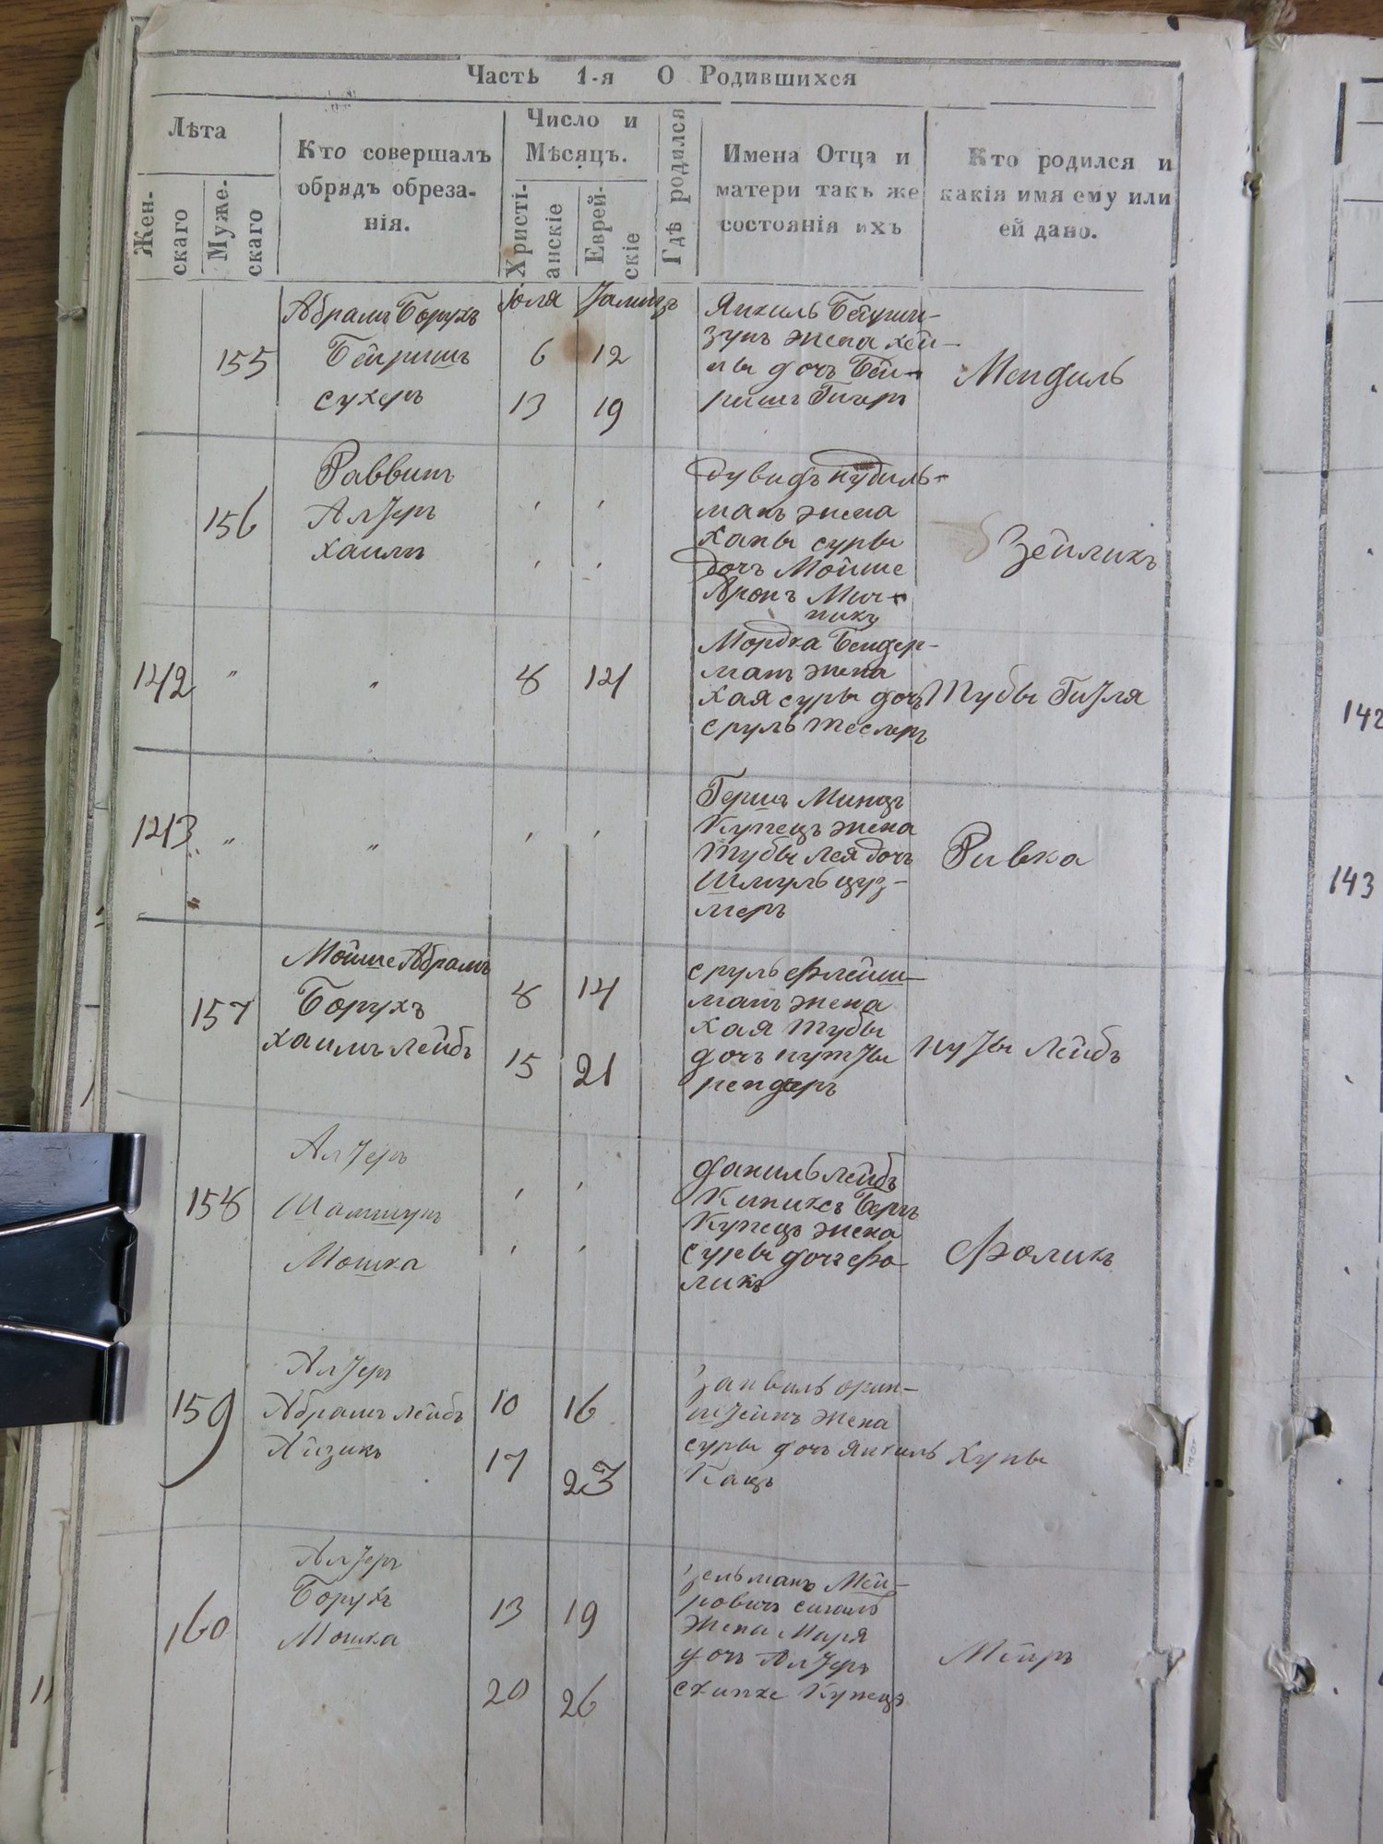 Часть 1-я О Родившихся
Лѣта
Жен-
скаго
Муже-
скаго
Кто совершалъ
обрядъ обреза-
нія.
Число и
Мѣсяцъ.
Христі-
анскіе
Еврей-
скіе
Гдѣ родился
Имена Отца и
матери такъ же
состоянія ихъ
Кто родился и
какія имя ему или
ей дано.
155
Абрамъ Борухъ
Бейришъ
сухеръ
Юля
6
13
12
19
Янкиль
жена хей-
дочъ Бей-
Мендиль
156
Раввинъ
Алтеръ
хаимъ
Дувидъ
манъ жена
ханы суры
дочъ Мойше
Аронъ Меч-
никъ
Зейликъ
142
„
„
8
14
Мордка Бендер-
манъ жена
хая суры дочъ
сруль теслеръ
Тубы Гитля
143
„
„
Гершъ Минцъ
Купецъ жена
Тубы лея дочъ
Шмуль цуз-
меръ
Ривка
157
Мойше Абрамъ
Борухъ
хаимъ лейбъ
8
15
14
21
сруль флейш-
манъ жена
хая тубы
дочъ нутты
рендеръ
нуты лейбъ
158
Алтеръ
Шамшунъ
Мошка
Данильлейбъ
Купецъ жена
суры дочъ фо
ликъ
Фоликъ
159
Алтеръ
Абрамъ лейбъ
Айзикъ
10
17
16
23
Занвиль орин-
штейнъ жена
суры дочъ янкиль
Кацъ
Хуны
160
Алтеръ
Борухъ
Мошка
13
20
19
26
зельманъ Мей-
ровичъ сигалъ
жена Маря
дочъ Алтеръ
Купецъ
Мейръ
142
143